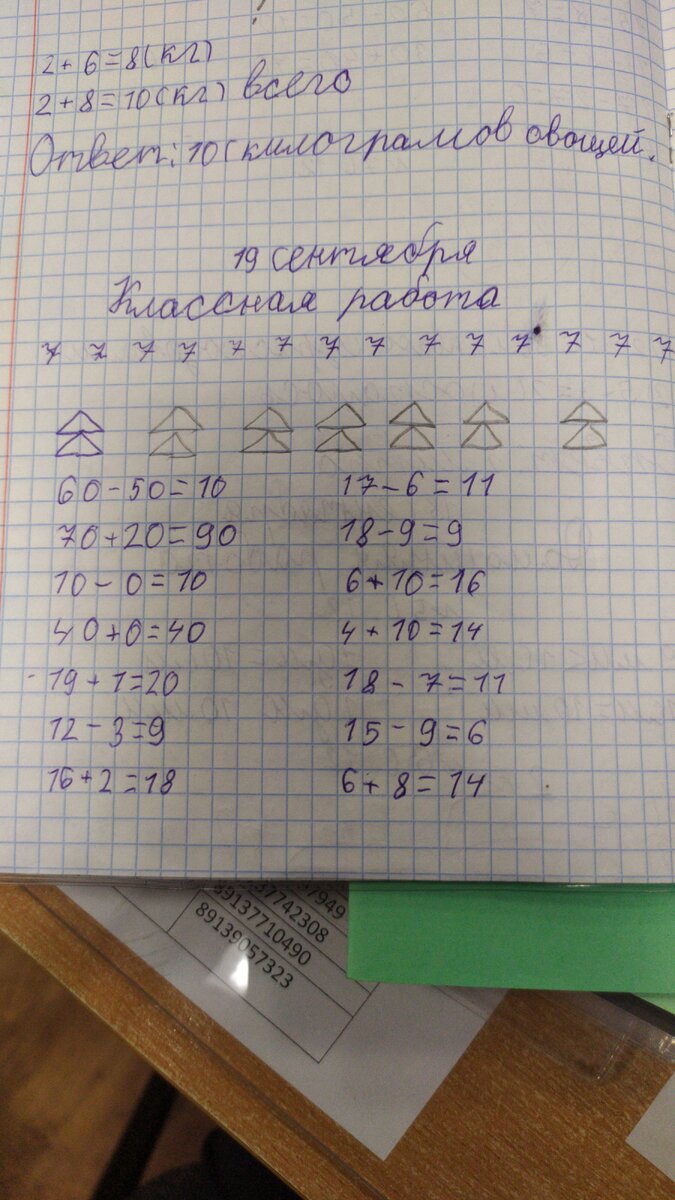 2+6=8(кг)
2+8=10(кг) всего
Ответ: 10(килограмов овощей.
19 сентября
Классная работа
7 7 7 7 7 7 7 7 7 7 7 7 7 7
60-50=10
17-6=11
70+20=90
18-9=9
10-0=10
6+10=16
40+0=40
4+10=14
19+1=20
18-7=11
12-3=9
15-9=6
16+2=18
6+8=14
37949
37742308
89137710490
89139057323